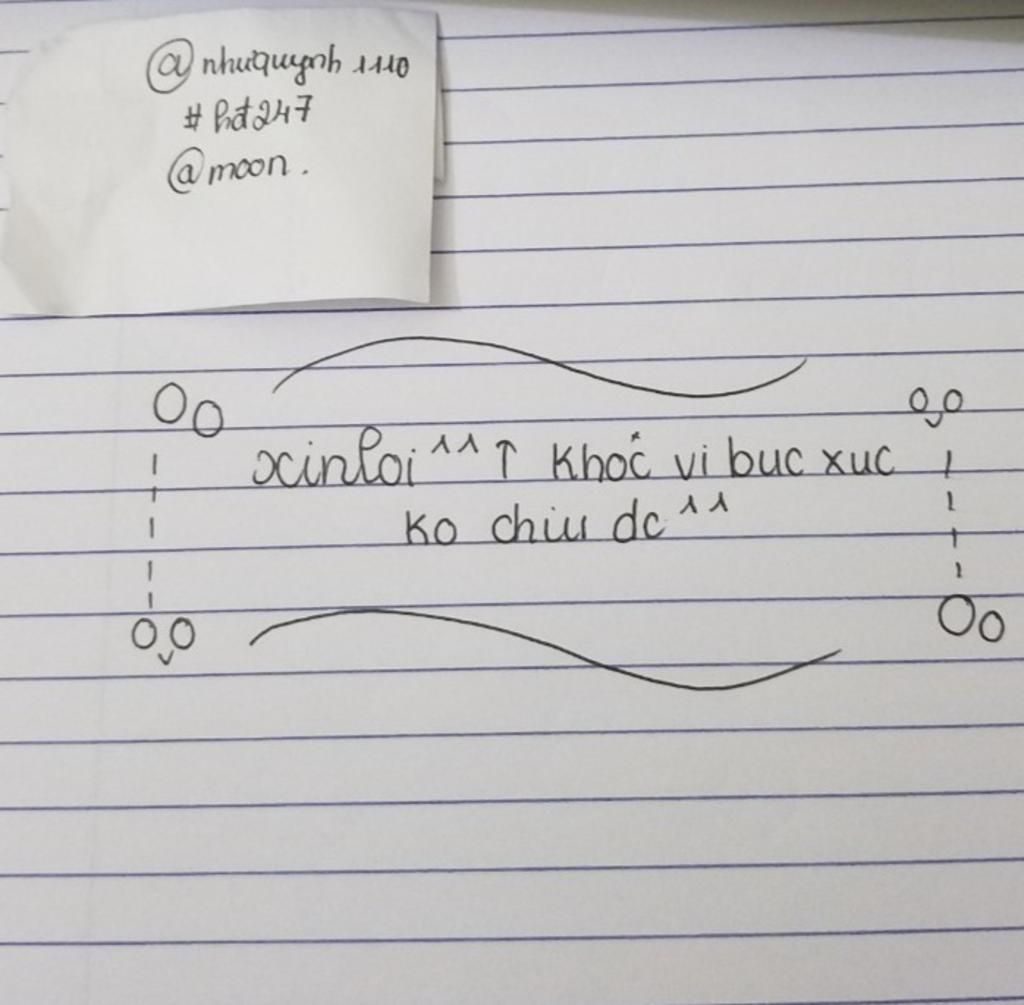 @nhuquynh1110
#hđ247
@moon.
xinloi^^↑ khốc vi buc xuc
ko chiu dc^^